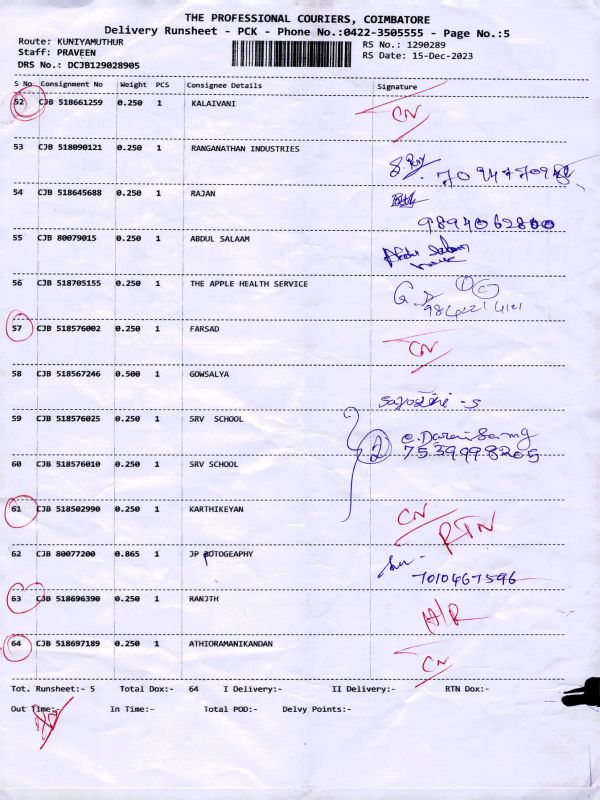 THE PROFESSIONAL COURIERS, COIMBATORE
Delivery Runsheet - PCK - Phone No.:0422-3505555 - Page No.:5
Route: KUNIYAMUTHUR RS No.: 1290289
Staff: PRAVEEN RS Date: 15-Dec-2023
DRS No.: DCJB129028905
S No Consignment No Weight PCS Consignee Details Signature
52 CJB 518661259 0.250 1 KALAIVANI CN
53 CJB 518090121 0.250 1 RANGANATHAN INDUSTRIES
54 CJB 518645688 0.250 1 RAJAN
9894062800
55 CJB 80079015 0.250 1 ABDUL SALAAM
56 CJB 518705155 0.250 1 THE APPLE HEALTH SERVICE
57 CJB 518576002 0.250 1 FARSAD CN
58 CJB 518567246 0.500 1 GOWSALYA
59 CJB 518576025 0.250 1 SRV SCHOOL
2 7539998205
60 CJB 518576010 0.250 1 SRV SCHOOL
61 CJB 518502990 0.250 1 KARTHIKEYAN CN RTN
62 CJB 80077200 0.865 1 JP POTOGEAPHY
7010467596
63 CJB 518696390 0.250 1 RANJTH H/R
64 CJB 518697189 0.250 1 ATHIORAMANIKANDAN CN
Tot. Runsheet:- 5 Total Dox:- 64 I Delivery:- II Delivery:- RTN Dox:-
Out Time:- In Time:- Total POD:- Delvy Points:-